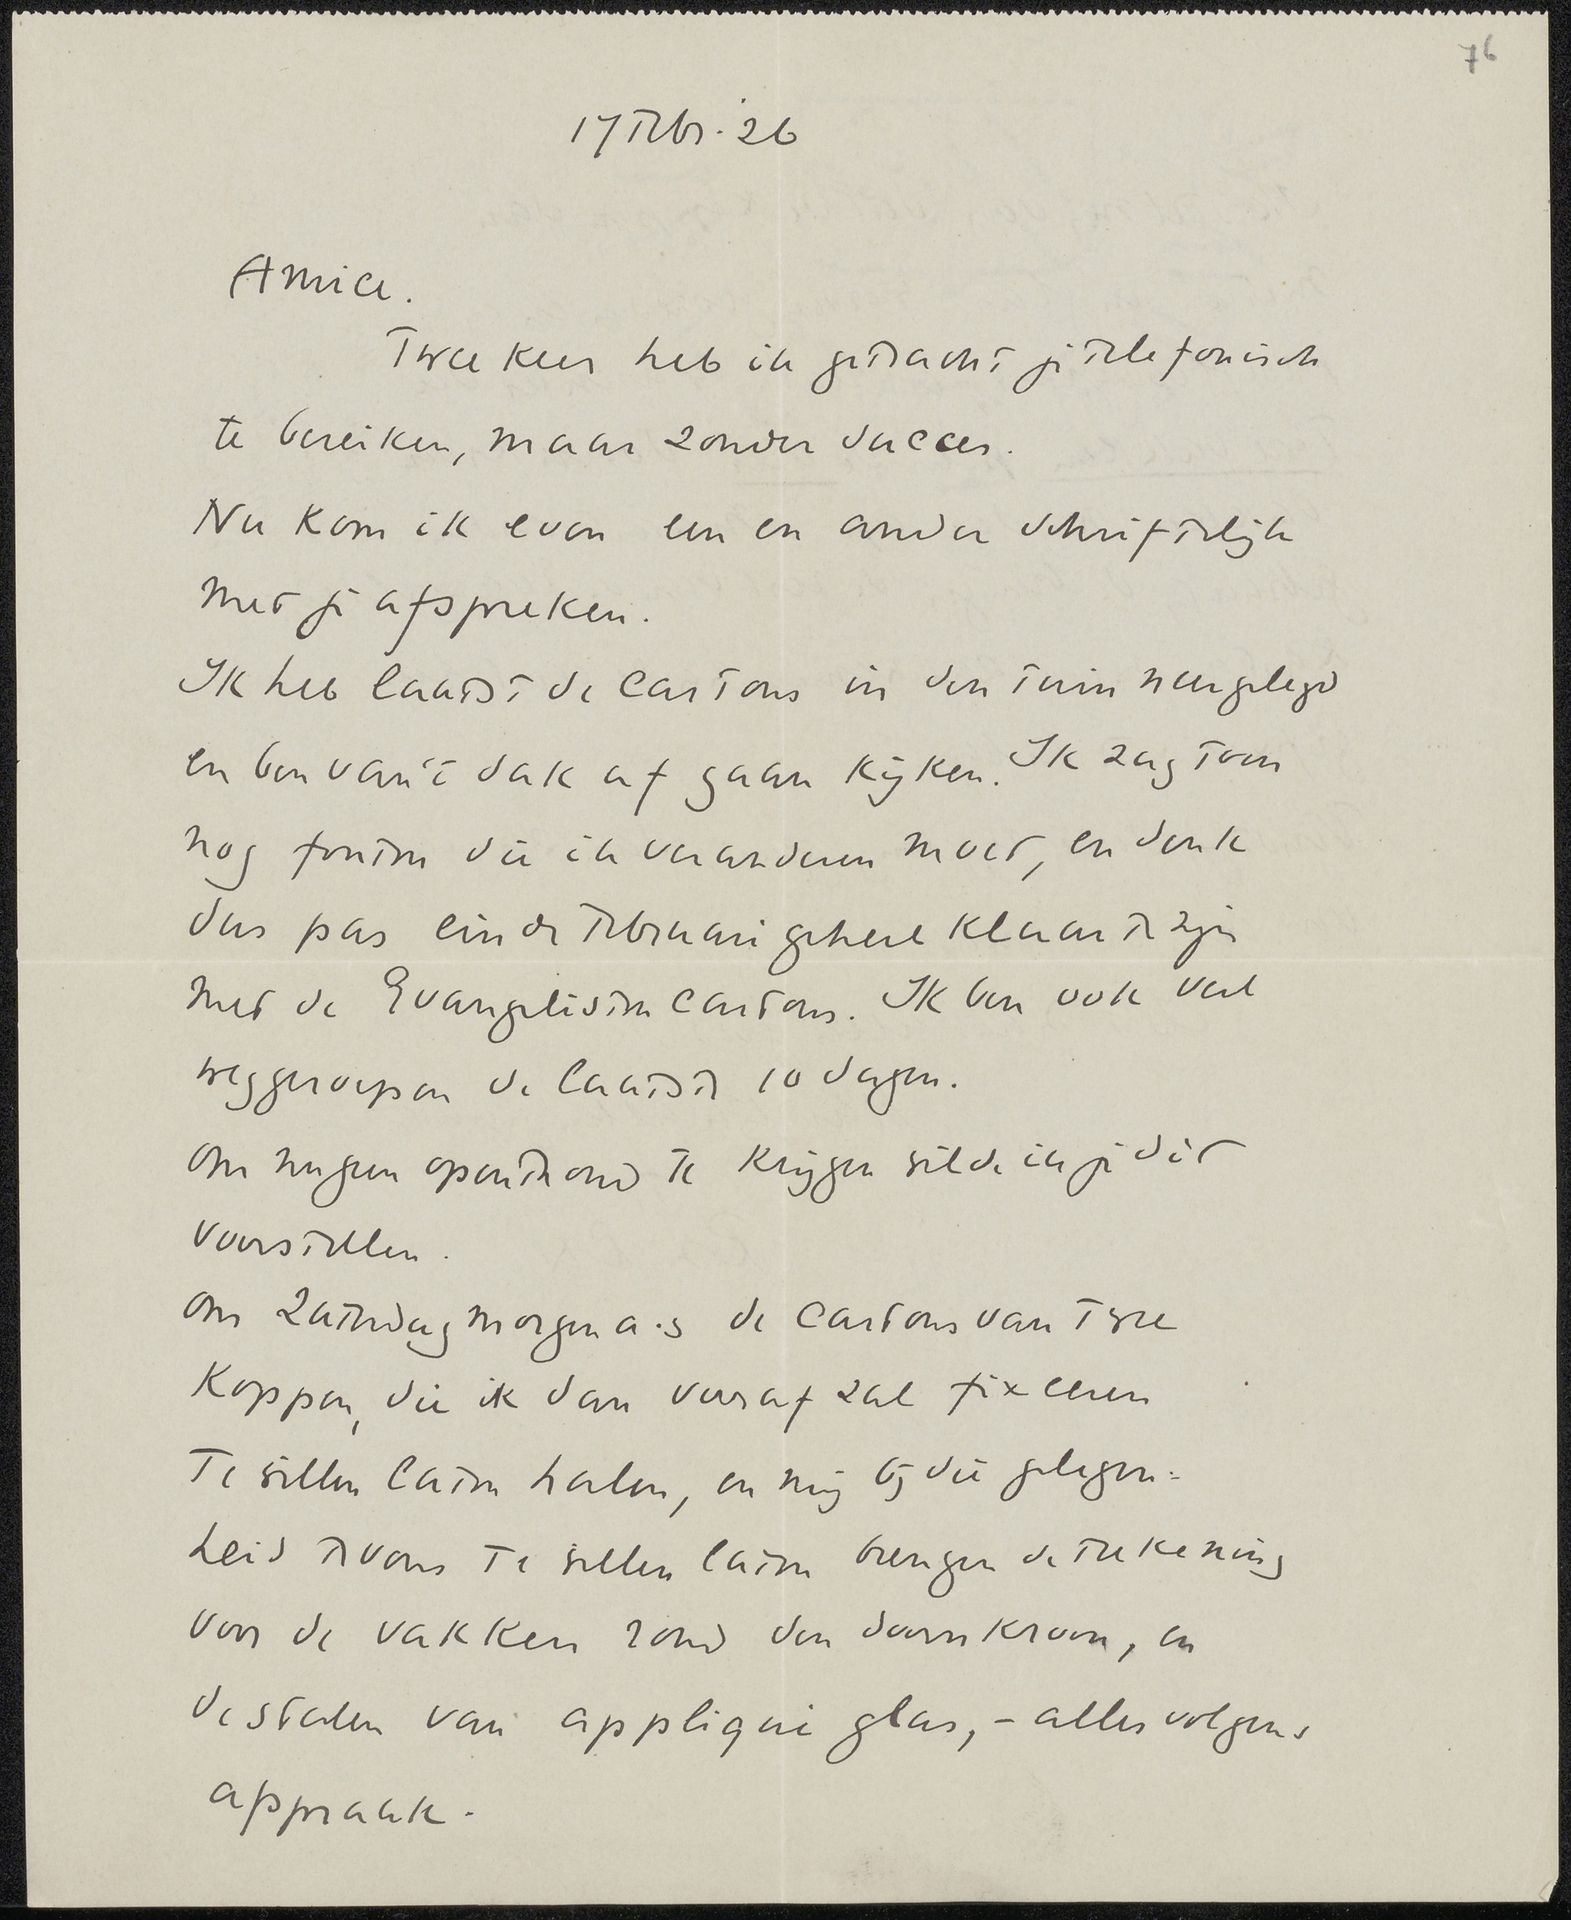 76
17 Febr. 26
Amice.
Twee keer heb ik getracht je telefonisch
te bereiken, maar zonder succes.
Nu kom ik even een en ander schriftelijk
met je afspreken.
Ik heb laatst de cartons in den tuin neergelegd
en ben van 't dak af gaan kijken. Ik zag toen
nog fouten die ik veranderen moet, en denk
dus pas einde Februari geheel klaar te zijn
met de Evangelisten cartons. Ik ben ook veel
weggeroepen de laatste 10 dagen.
Om nu geen oponthoud te krijgen wilde ik je dit
voorstellen.
Om Zaterdagmorgen a.s de cartons van twee
Koppen, die ik dan vooraf zal fixeeren
te willen laten halen, en mij bij die gelegen-
heid tevens te willen laten brengen de teekening
voor de vakken rond den doornkroon, en
de stalen van appliqué glas, - alles volgens
afspraak.